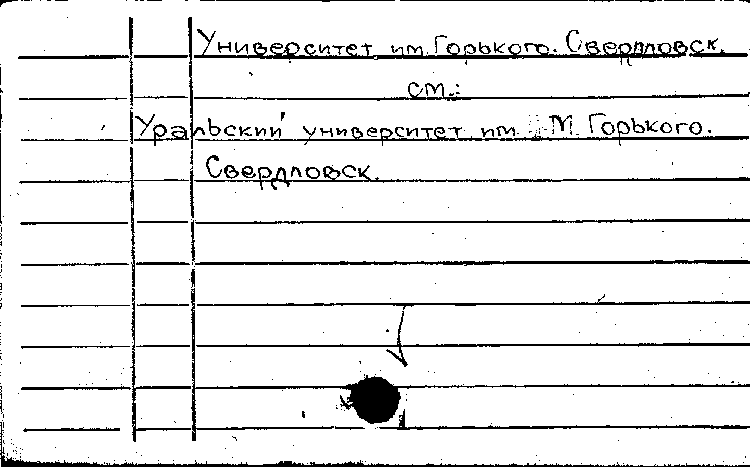 Университет им. Горького. Свердловск.
см.:
Уральский университет им. М. Горького.
Свердловск.